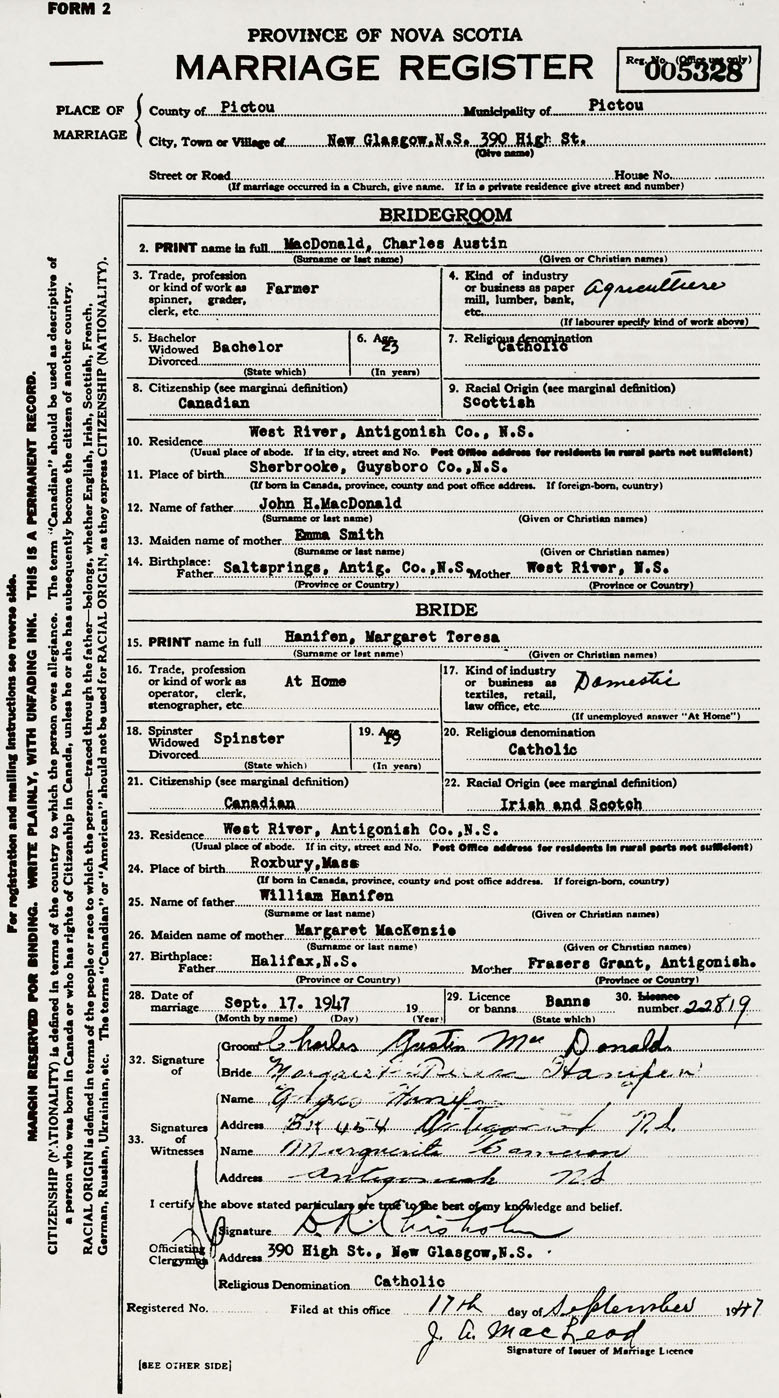 FORM 2
PROVINCE OF NOVA SCOTIA
MARRIAGE REGISTER
Reg. No. (Office use only)
005328
PLACE OF MARRIAGE
County of Pictou Municipality of Pictou
City, Town or Village of New Glasgow,N.S. 390 High St.
(Give name)
Street or Road House No.
(If marriage occurred in a Church, give name. If in a private residence give street and number)
BRIDEGROOM
2. PRINT name in full MacDonald, Charles Austin
(Surname or last name) (Given or Christian names)
3. Trade, profession or kind of work as spinner, grader, clerk, etc. Farmer
4. Kind of industry or business as paper mill, lumber, bank, etc. Agriculture
(If labourer specify kind of work above)
5. Bachelor Widowed Divorced Bachelor
(State which)
6. Age 23
(In years)
7. Religious denomination
Catholic
8. Citizenship (see marginal definition)
Canadian
9. Racial Origin (see marginal definition)
Scottish
10. Residence West River, Antigonish Co., N.S.
(Usual place of abode. If in city, street and No. Post Office address for residents in rural parts not sufficient)
11. Place of birth Sherbrooke, Guysboro Co.,N.S.
(If born in Canada, province, county and post office address. If foreign-born, country)
12. Name of father John H.MacDonald
(Surname or last name) (Given or Christian names)
13. Maiden name of mother Emma Smith
(Surname or last name) (Given or Christian names)
14. Birthplace: Father Saltsprings, Antig. Co.,N.S. Mother West River, N.S.
(Province or Country) (Province or Country)
BRIDE
15. PRINT name in full Hanifen, Margaret Teresa
(Surname or last name) (Given or Christian names)
16. Trade, profession or kind of work as operator, clerk, stenographer, etc. At Home
17. Kind of industry or business as textiles, retail, law office, etc. Domestic
(If unemployed answer "At Home")
18. Spinster Widowed Divorced Spinster
(State which)
19. Age 19
(In years)
20. Religious denomination
Catholic
21. Citizenship (see marginal definition)
Canadian
22. Racial Origin (see marginal definition)
Irish and Scotch
23. Residence West River, Antigonish Co.,N.S.
(Usual place of abode. If in city, street and No. Post Office address for residents in rural parts not sufficient)
24. Place of birth Roxbury,Mass
(If born in Canada, province, county and post office address. If foreign-born, country)
25. Name of father William Hanifen
(Surname or last name) (Given or Christian names)
26. Maiden name of mother Margaret MacKenzie
(Surname or last name) (Given or Christian names)
27. Birthplace: Father Halifax,N.S. Mother Frasers Grant, Antigonish.
(Province or Country) (Province or Country)
28. Date of marriage Sept. 17. 1947 19
(Month by name) (Day) (Year)
29. Licence or banns Banns
(State which)
30. Licence number 22819
32. Signature of
Groom Charles Austin Mac Donald
Bride Margaret Teresa Hanifen
33. Signatures of Witnesses
Name Hanifen
Address Bx 454 Antigonish N.S.
Name Marguerite Cameron
Address Antigonish NS
I certify the above stated particulars are true to the best of my knowledge and belief.
Officiating Clergyman
Signature D. R. Chisholm
Address 390 High St., New Glasgow,N.S.
Religious Denomination Catholic
Registered No. Filed at this office 17th day of September 1947
J. A. MacLeod
Signature of Issuer of Marriage Licence
[SEE OTHER SIDE]
For registration and mailing instructions see reverse side.
MARGIN RESERVED FOR BINDING. WRITE PLAINLY, WITH UNFADING INK. THIS IS A PERMANENT RECORD.
CITIZENSHIP (NATIONALITY) is defined in terms of the country to which the person owes allegiance. The term "Canadian" should be used as descriptive of
a person who was born in Canada or who has rights of Citizenship in Canada, unless he or she has subsequently become the citizen of another country.
RACIAL ORIGIN is defined in terms of the people or race to which the person—traced through the father—belongs, whether English, Irish, Scottish, French,
German, Russian, Ukrainian, etc. The terms "Canadian" or "American" should not be used for RACIAL ORIGIN, as they express CITIZENSHIP (NATIONALITY).